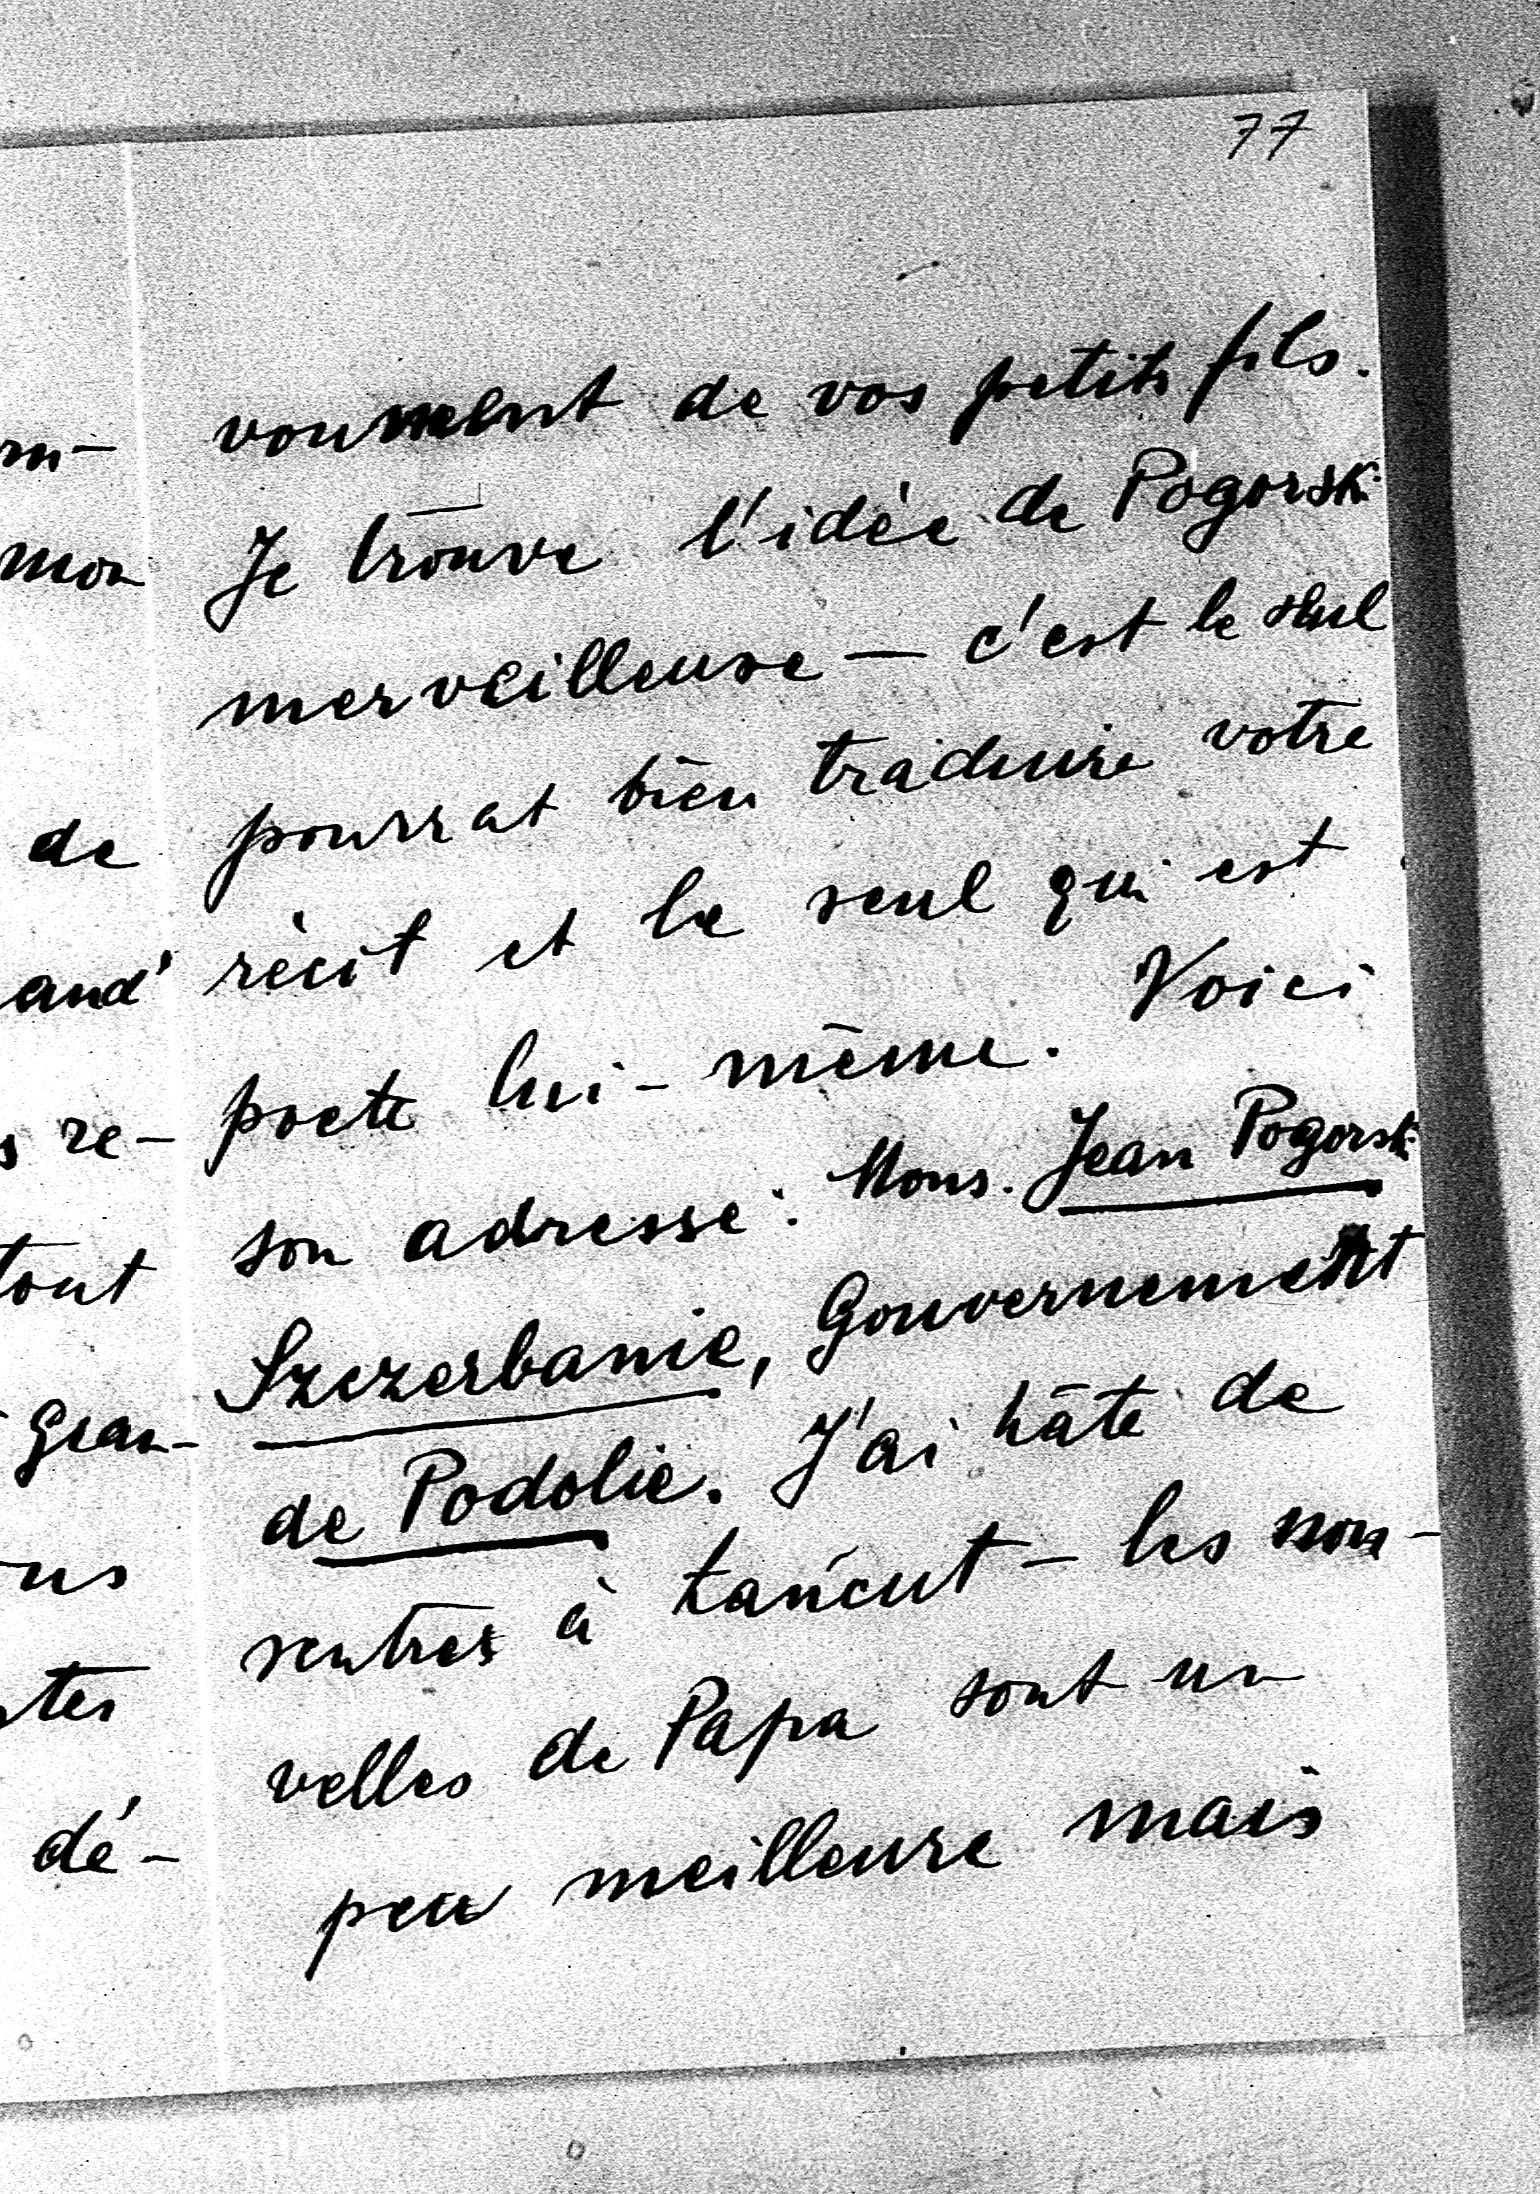 77
vouement de vos petits fils.
Je trouve l'idée de Pogorski
merveilleuse — c'est le seul
pourrat bien traduire votre
récit et le seul qui est
poete lui-même. Voici
son adresse: Mons. Jean Pogorski
Szczerbanie, Gouvernement
de Podolie. J'ai hâte de
rentrer à Łańcut — les nou-
velles de Papa sont un
peu meilleure mais
m-
mon
de
and'
s re-
tout
Gran-
us
tes
dé-